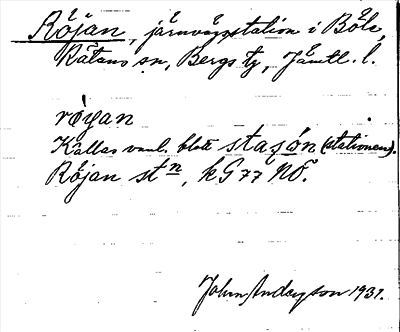 Röjan, järnvägsstation i Böle,
Rätans sn, Bergs tg, Jämtl. l.
ròyan
Kallas vanl. blott stasón (stationen).
Röjan stn, kG 77 NO.
John Anderzson 1931.